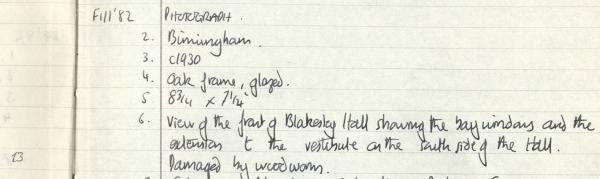 F111'82 PHOTOGRAPH.
2. Birmingham.
3. c1930
4. Oak frame, glazed.
5 8 3/4 x 7 1/4
6. View of the front of Blakesley Hall showing the bay windows and the
extension to the vestibule on the south side of the Hall.
13
Damaged by woodworm.